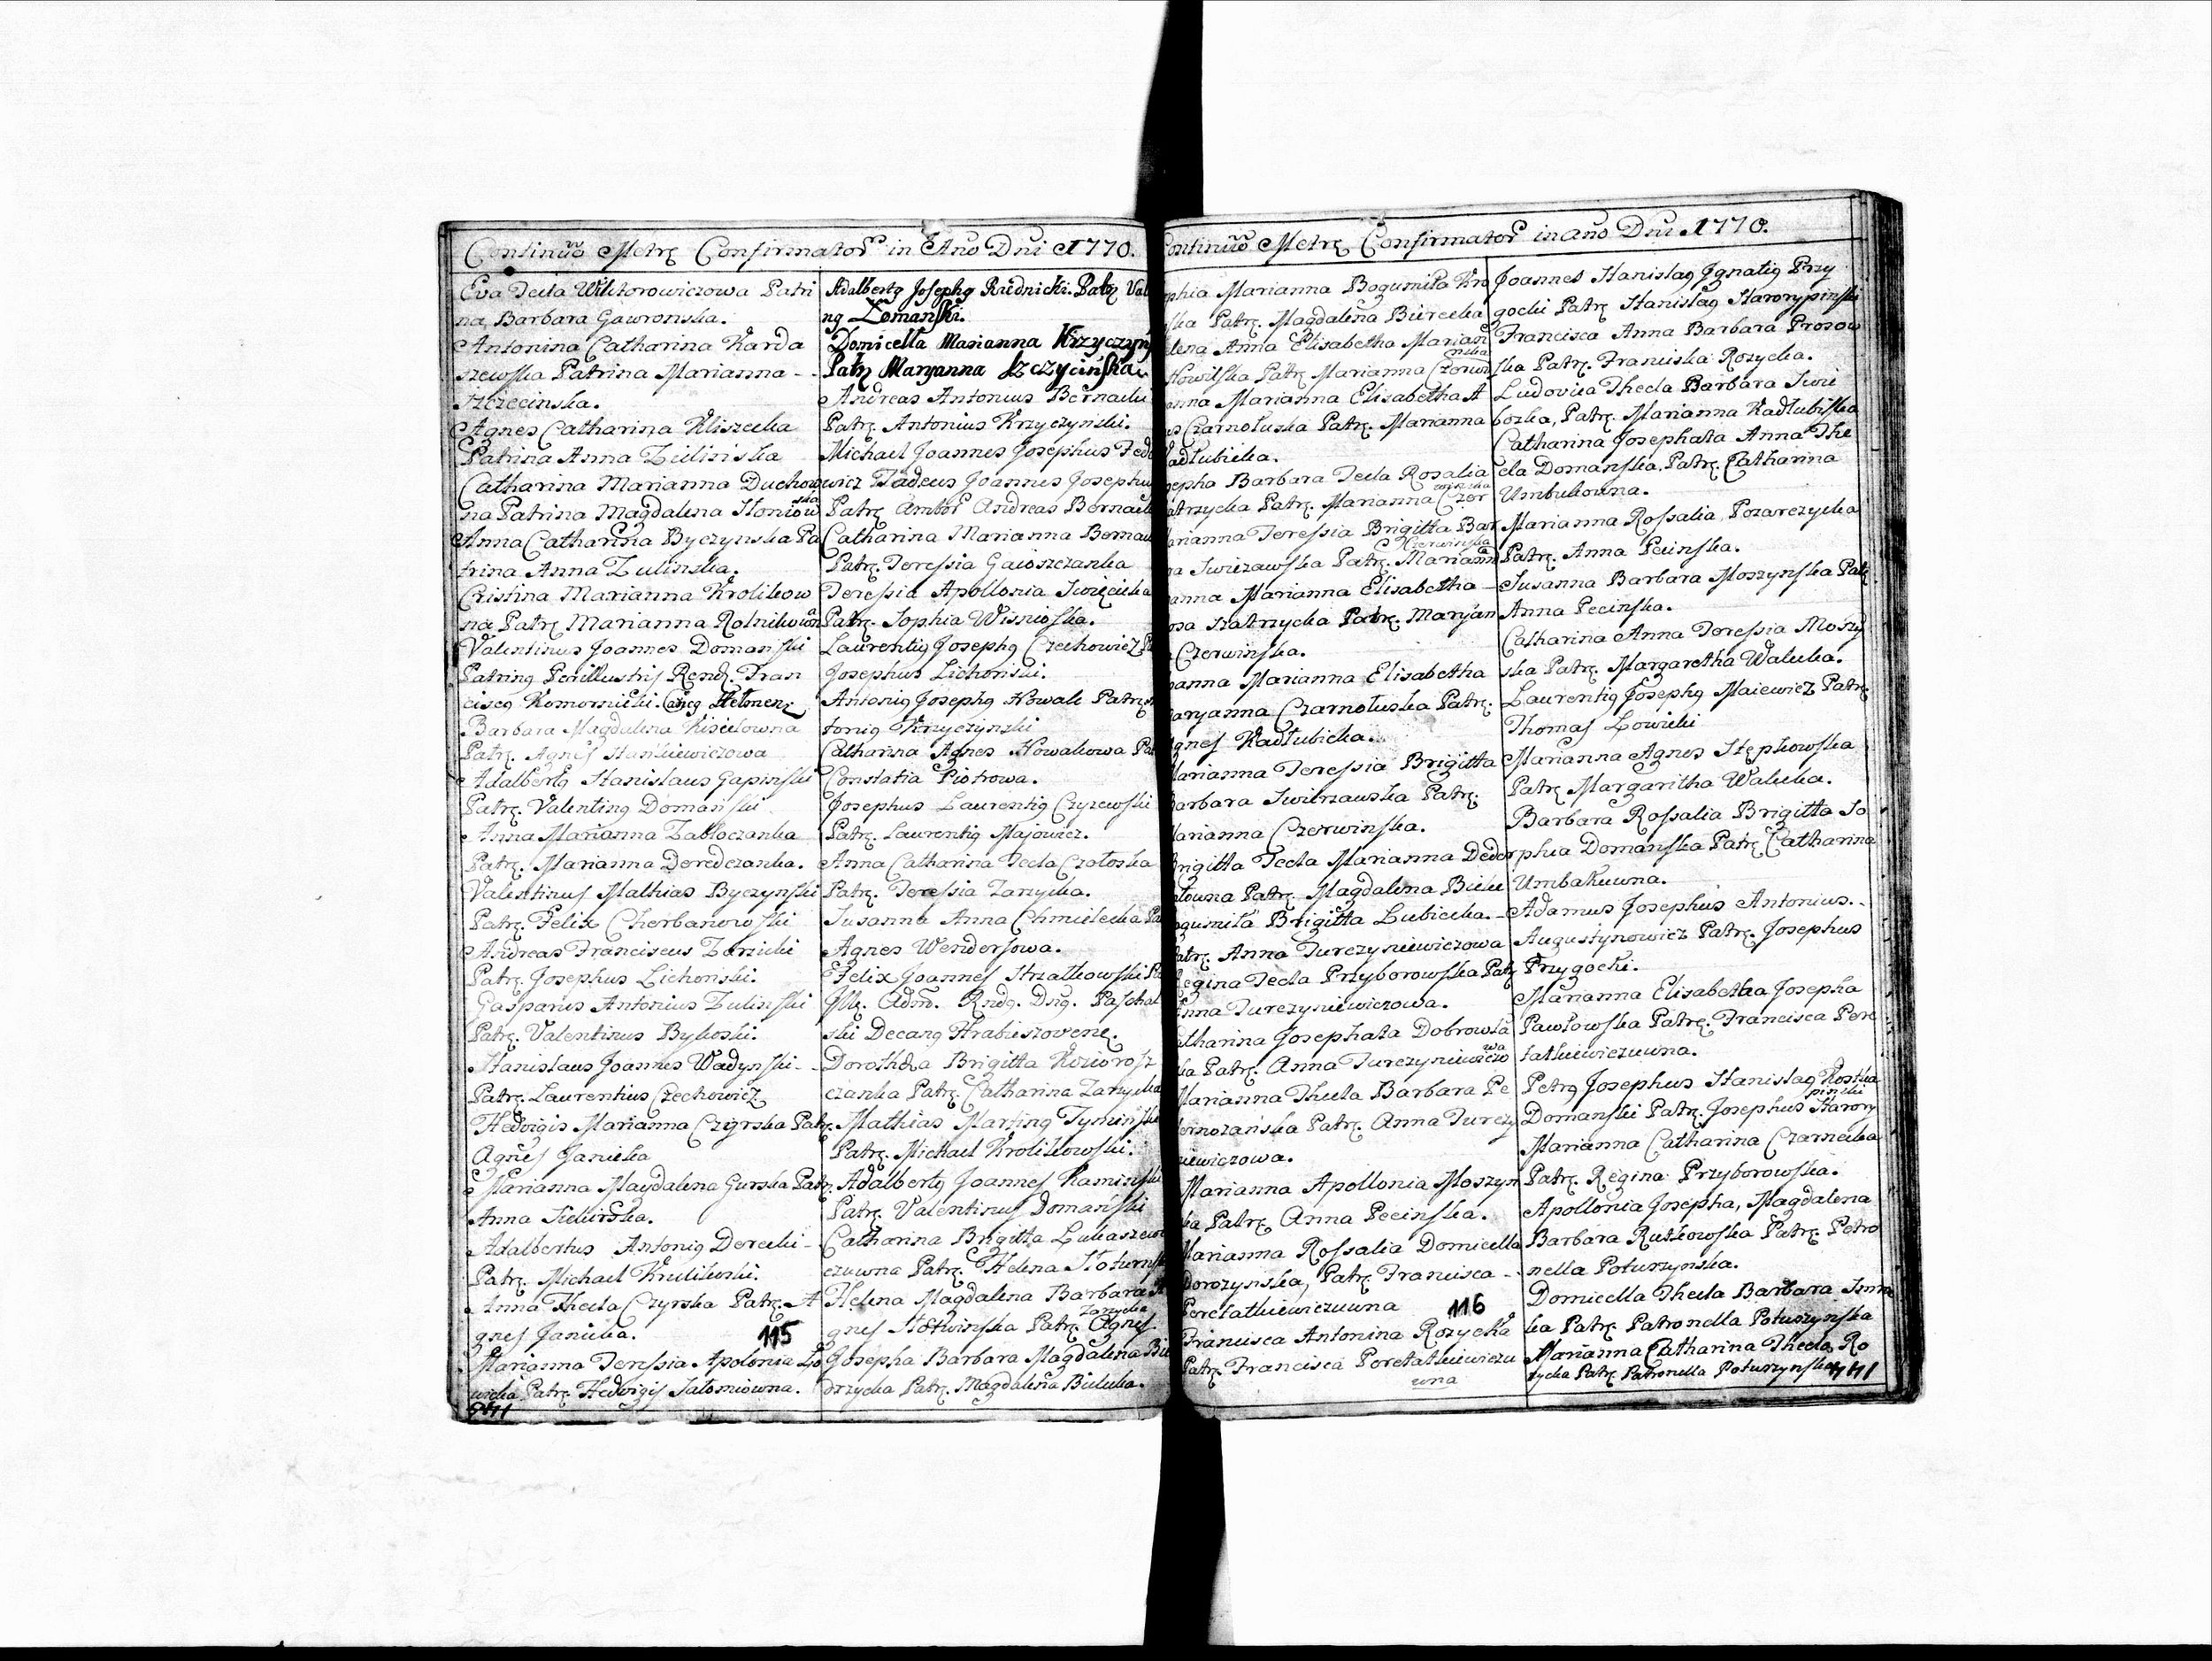 Continuo Metrę Confirmator in Ano Dni 1770.
Eva Tecla Wiktorowiczowa Patri
na, Barbara Gawronska.
Antonina Catharina Karda
szewska Patrina Marianna - -
Szczecinska.
Agnes Catharina Kliszecka
Patrina Anna Zulinska
Catharina Marianna Duchow
na Patrina Magdalena Honiow
ska
Anna Catharina Byczynska Pa
trina Anna Zulinska.
Cristina Marianna Krolikow
na Patrę Marianna Rolnikowa
Valentinus Joannes Domanski
Patring Perillustris Rend. Fran
ciscg Komornicki.
Barbara Magdalena Kisielowna
Patrę. Agnes Stankiewiczowa
Adalbertg Stanislaus Gapinski
Patrę. Valenting Domanski
Anna Marianna Zabłoczanka
Patrę. Marianna Deredczanka.
Valentinus Mathias Byczynski
Patrę. Felix Cherbanowski
Andreas Franciscus Zarzicki
Patrę. Josephus Lichonski.
Gasparus Antonius Zulinski
Patrę. Valentinus Bykoski.
Stanislaus Joannes Wadynski -
Patrę. Laurentius Czechowicz.
Hedvigis Marianna Czyrska Patr.
Agnes Janicka
Marianna Magdalena Gurska Patr.
Anna Siekirska.
Adalbertus Antonig Derecki -
Patrę. Michael Krulikoski.
Anna Thecla Czyrska Patrę. A
gnes Janicka.
115
Marianna Teressia Apolonia Ło
wicka Patrę. Hedvigis Salomiowna.
Adalbertg Josephg Rudnicki. Patrę Val
ng Łomanski.
Domicella Marianna Krzyczyns
Patrę Maryanna Szczycińska.
Andreas Antonius Bernacki
Patrę. Antonius Krzyczynski.
Michael Joannes Josephus Fedo
wicz Tadeus Joannes Josephus
Patrę Ambor Andreas Bernacki
Catharina Marianna Bernac
Patrę. Teressia Gaioszczanka
Teressia Apollonia Swięcicka
Patrę. Sophia Wisnioska.
Laurentig Josephg Czechowicz Pa
Josephus Lichonski.
Antonig Josephg Nowak Patrę
tonig Krzyczynski
Catharina Agnes Nowakowa Pat
Constatia Piotrowa.
Josephus Laurentig Czyzewski
Patrę. Laurentig Majowicz.
Anna Catharina Tecla Czołoska
Patrę. Teressia Zarzycka.
Susanna Anna Chmielecka Pa
Agnes Wendersowa.
Felix Joannes Strzałkowski Pa
Adm. Rndg. Dng. Paschal
ski Decang Hrabieszovenę.
Dorothea Brigitta Koziorosz
czanka Patrę. Catharina Zarzycka
Mathias Marting Tyminski
Patrę. Michael Krolikowski.
Adalbertg Joannes Kaminski
Patrę. Valentinus Domański
Catharina Brigitta Łukaszew
czuwna Patrę. Helena Słoturnsk
Helena Magdalena Barbara A
gnes Słotwinska Patrę. Agnes
Zarzycka
Josepha Barbara Magdalena Bie
drzycka Patrę. Magdalena Bielicka.
ontinuo Metrę Confirmator in ano Dni 1770.
phia Marianna Bogumiła Kro
ska Patrę. Magdalena Biercka
lena Anna Elisabetha Mariana
Nowilska Patrę Marianna Czerwi
nska
anna Marianna Elisabetha A
s Czarnołuska Patrę. Marianna
adłubicka.
sepha Barbara Tecla Rosalia
atrzycka Patrę. Marianna Czer
winska
arianna Teressia Brigitta Bar
ra Swirzawska Patrę. Mariana
Czerwinska
anna Marianna Elisabetha -
osa Szatrzycka Patrę. Maryan
a Czerwinska.
anna Marianna Elisabetha
aryanna Czarnołuska Patrę.
gnes Kadłubicka.
Marianna Teressia Brigitta
Barbara Swirzawska Patrę.
Marianna Czerwinska.
Brigitta Tecla Marianna Deder
kowna Patrę. Magdalena Bielic
ogumiła Brigitta Lubiecka. -
Patrę. Anna Turczyniewiczowa
Regina Tecla Przyborowska Patrę
Anna Turczyniewiczowa.
atharina Josephata Dobrowla
ka Patrę. Anna Turczyniewiczo
wa
Marianna Thecla Barbara Pe
ternozańska Patrę. Anna Turczy
niewiczowa.
Marianna Apollonia Moszyn
ska Patrę. Anna Pecinska.
Marianna Rossalia Domicella
Dorozynska, Patrę Francisca -
Peretatkiewiczuwna
116
Francisca Antonina Rozycka
Patrę. Francisca Peretatkiewiczu
wna
Joannes Stanislag Ignatig Przy
gocki Patrę Stanislag Starorypinski
Francisca Anna Barbara Prosow
ska Patrę. Franciska Rozycka.
Ludovica Thecla Barbara Swie
bozka, Patrę. Marianna Kadłubiska
Catharina Josephata Anna The
cla Domanska. Patrę. Catharina
Umbukowna.
Marianna Rossalia Pozarczycka
Patrę. Anna Pecinska.
Susanna Barbara Moszynska Patrę
Anna Pecinska.
Catharina Anna Teressia Moszy
ska Patrę. Margaretha Walicka.
Laurentig Josephg Maiewicz Patrę
Thomas Łowicki
Marianna Agnes Stępkowska
Patrę Margaritha Walicka.
Barbara Rossalia Brigitta So
phia Domanska Patrę Catharina
Umbakuwna.
Adamus Josephus Antonius. -
Augustynowicz Patrę. Josephus
Przygocki.
Marianna Elisabetha Josepha
Pawłowska Patrę. Francisca Pere
tatkiewiczuwna.
Petrg Josephus Stanislag Kostka
Domanski Patrę. Josephus Starory
pinski
Marianna Catharina Czarnecka
Patrę. Regina Przyborowska.
Apollonia Josepha, Magdalena
Barbara Rutkowska Patrę. Petro
nella Poturzynska.
Domicella Thecla Barbara
ka Patrę. Patronella Poturzynska
Marianna Catharina Thecla Ro
zycka Patrę. Patronella Poturzynska